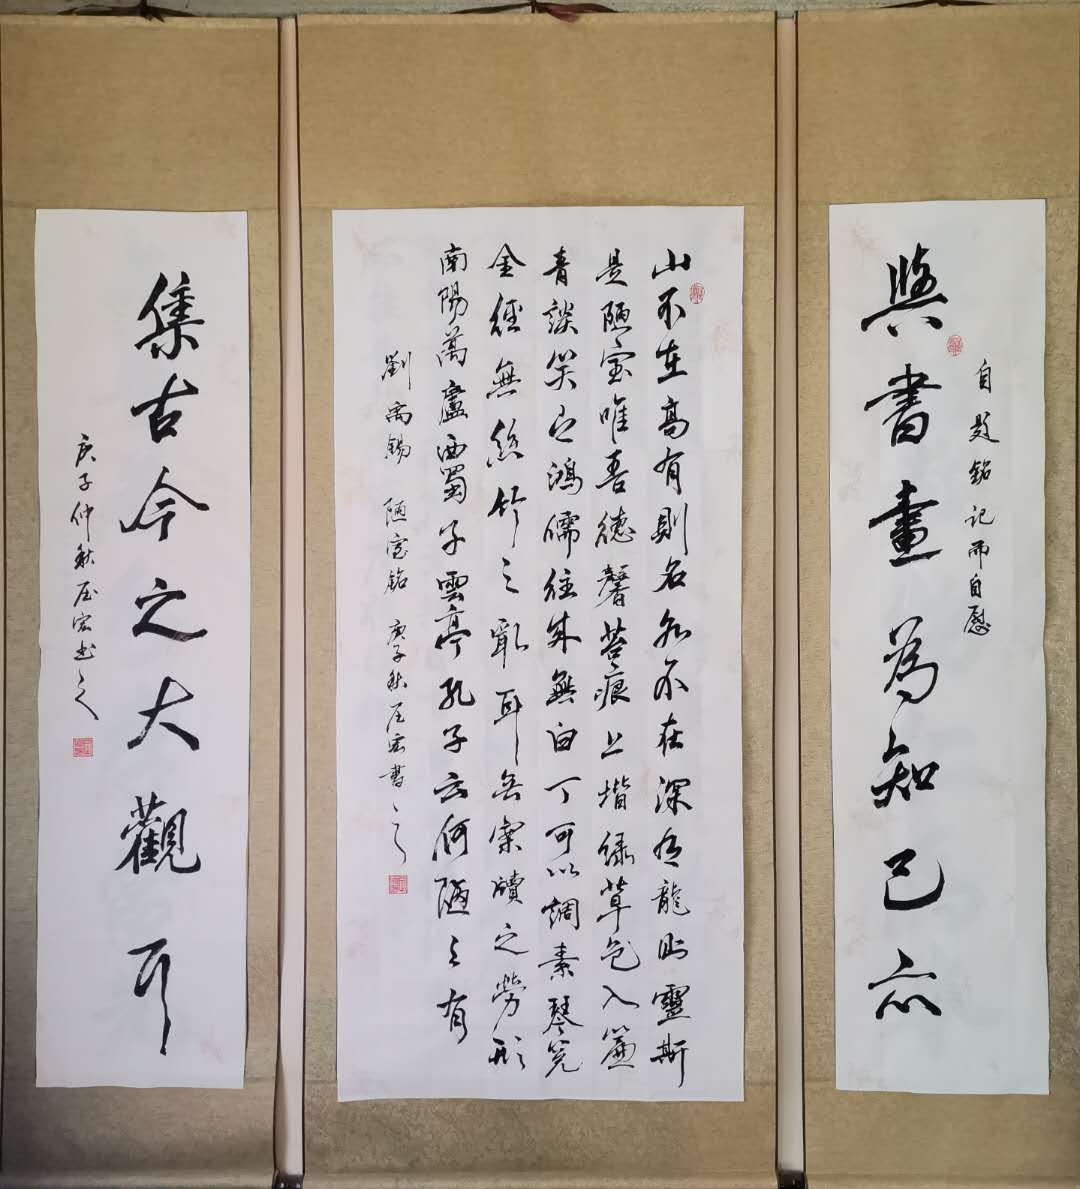 自題銘記而自慰
與書畫為知己亦
山不在高有則名水不在深有龍則靈斯
是陋室唯吾德馨苔痕上堦綠草色入簾
青談笑有鴻儒往來無白丁可以調素琴閱
金經無絲竹之亂耳無案牘之勞形
南陽葛廬西蜀子雲亭孔子云何陋之有
劉禹錫 陋室銘 庚子秋 宏書之
集古今之大觀耳
庚子仲秋 宏书之